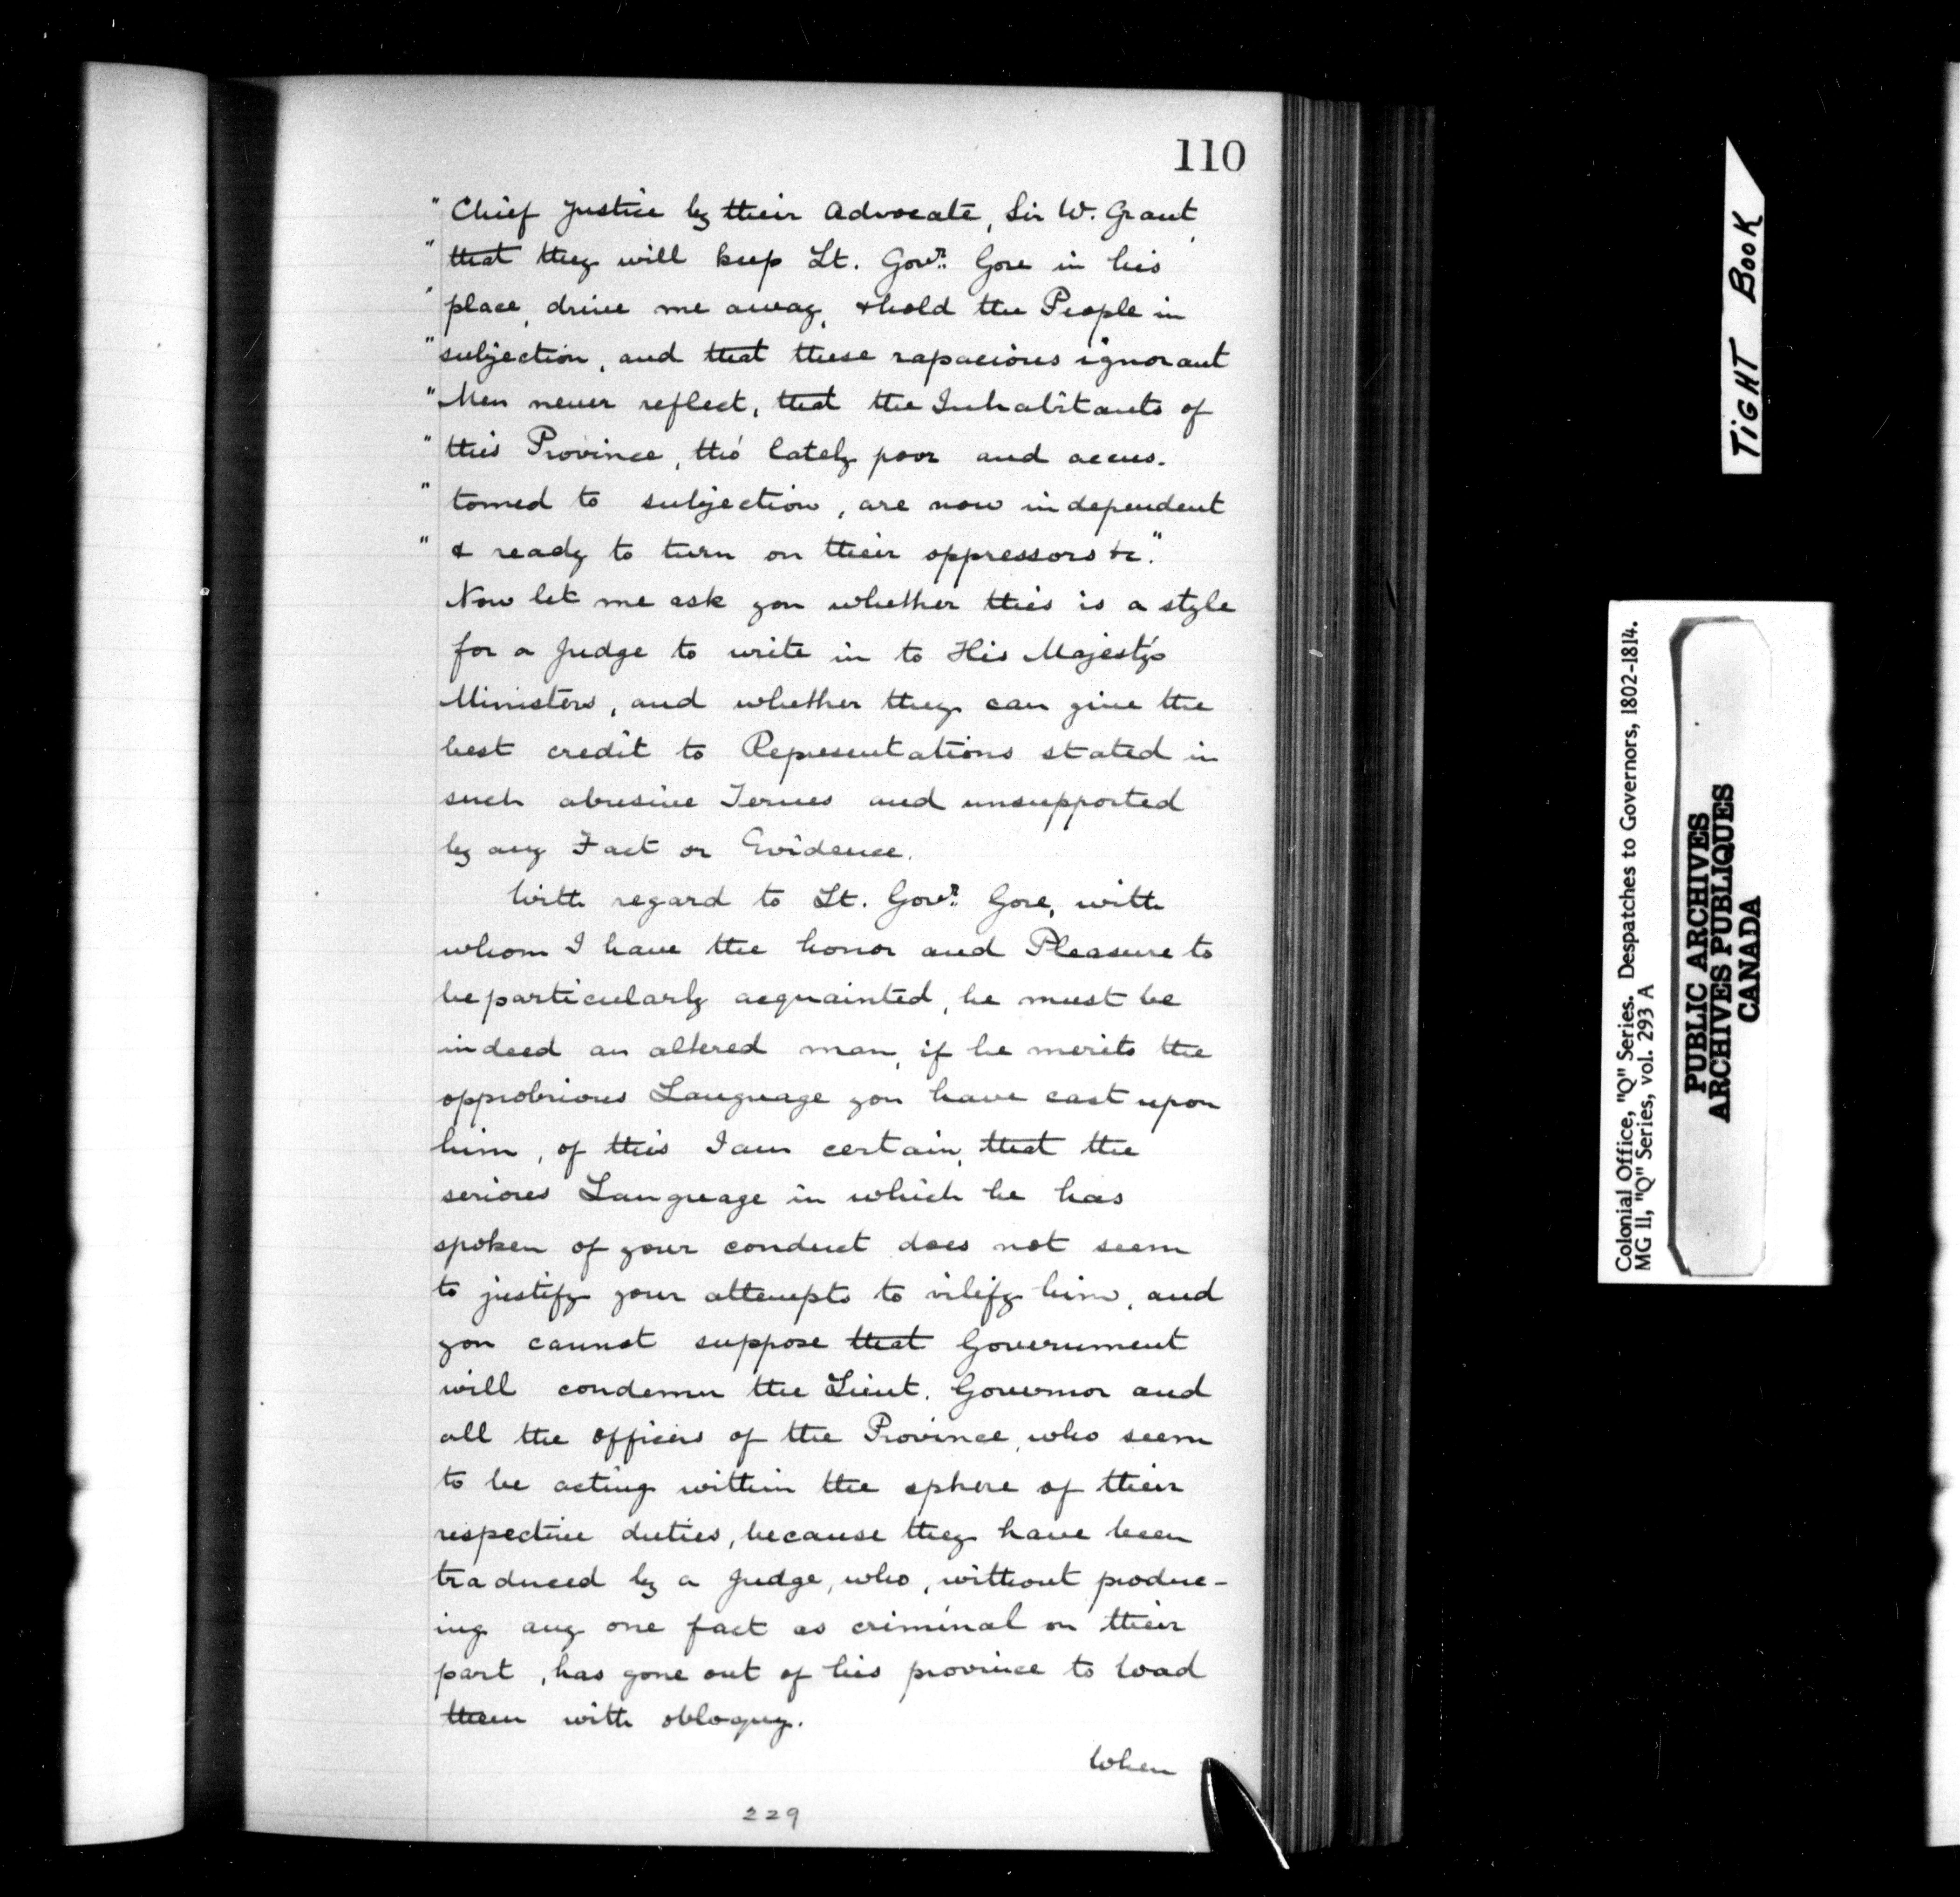 110
" Chief Justice by their Advocate, Sir W. Grant,
" that they will keep Lt. Govr. Gore in his
" place, drive me away, & hold the People in
" subjection, and that these rapacious ignorant
" Men never reflect, that the Inhabitants of
" this Province, tho' lately poor and accus-
" tomed to subjection, are now independent
" & ready to turn on their oppressors &c."
Now let me ask you whether this is a style
for a Judge to write in to His Majesty's
Ministers, and whether they can give the
best credit to Representations stated in
such abusive Terms and unsupported
by any Fact or Evidence.
With regard to Lt. Govr. Gore, with
whom I have the honor and Pleasure to
be particularly acquainted, he must be
indeed an altered man, if he merits the
opprobrious Language you have cast upon
him, of this I am certain, that the
serious Language in which he has
spoken of your conduct does not seem
to justify your attempts to vilify him, and
you cannot suppose that Government
will condemn the Lieut. Governor and
all the officers of the Province, who seem
to be acting within the sphere of their
respective duties, because they have been
traduced by a Judge, who, without produc-
ing any one fact as criminal on their
part, has gone out of his province to load
them with obloquy.
When
229
TIGHT BOOK
Colonial Office, "Q" Series. Despatches to Governors, 1802-1814.
MG 11, "Q" Series, vol. 293 A
PUBLIC ARCHIVES
ARCHIVES PUBLIQUES
CANADA